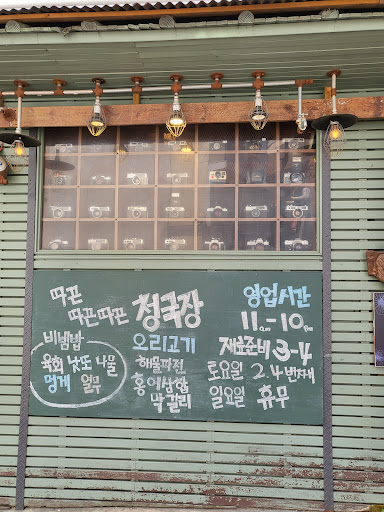 따끈
따끈따끈 청국장
비빔밥
육회 낫또 나물
멍게 열무
오리고기
해물파전
홍어삼합
막걸리
영업시간
11am-10pm
재료준비 3-4
토요일 2 4번째
일요일 휴무